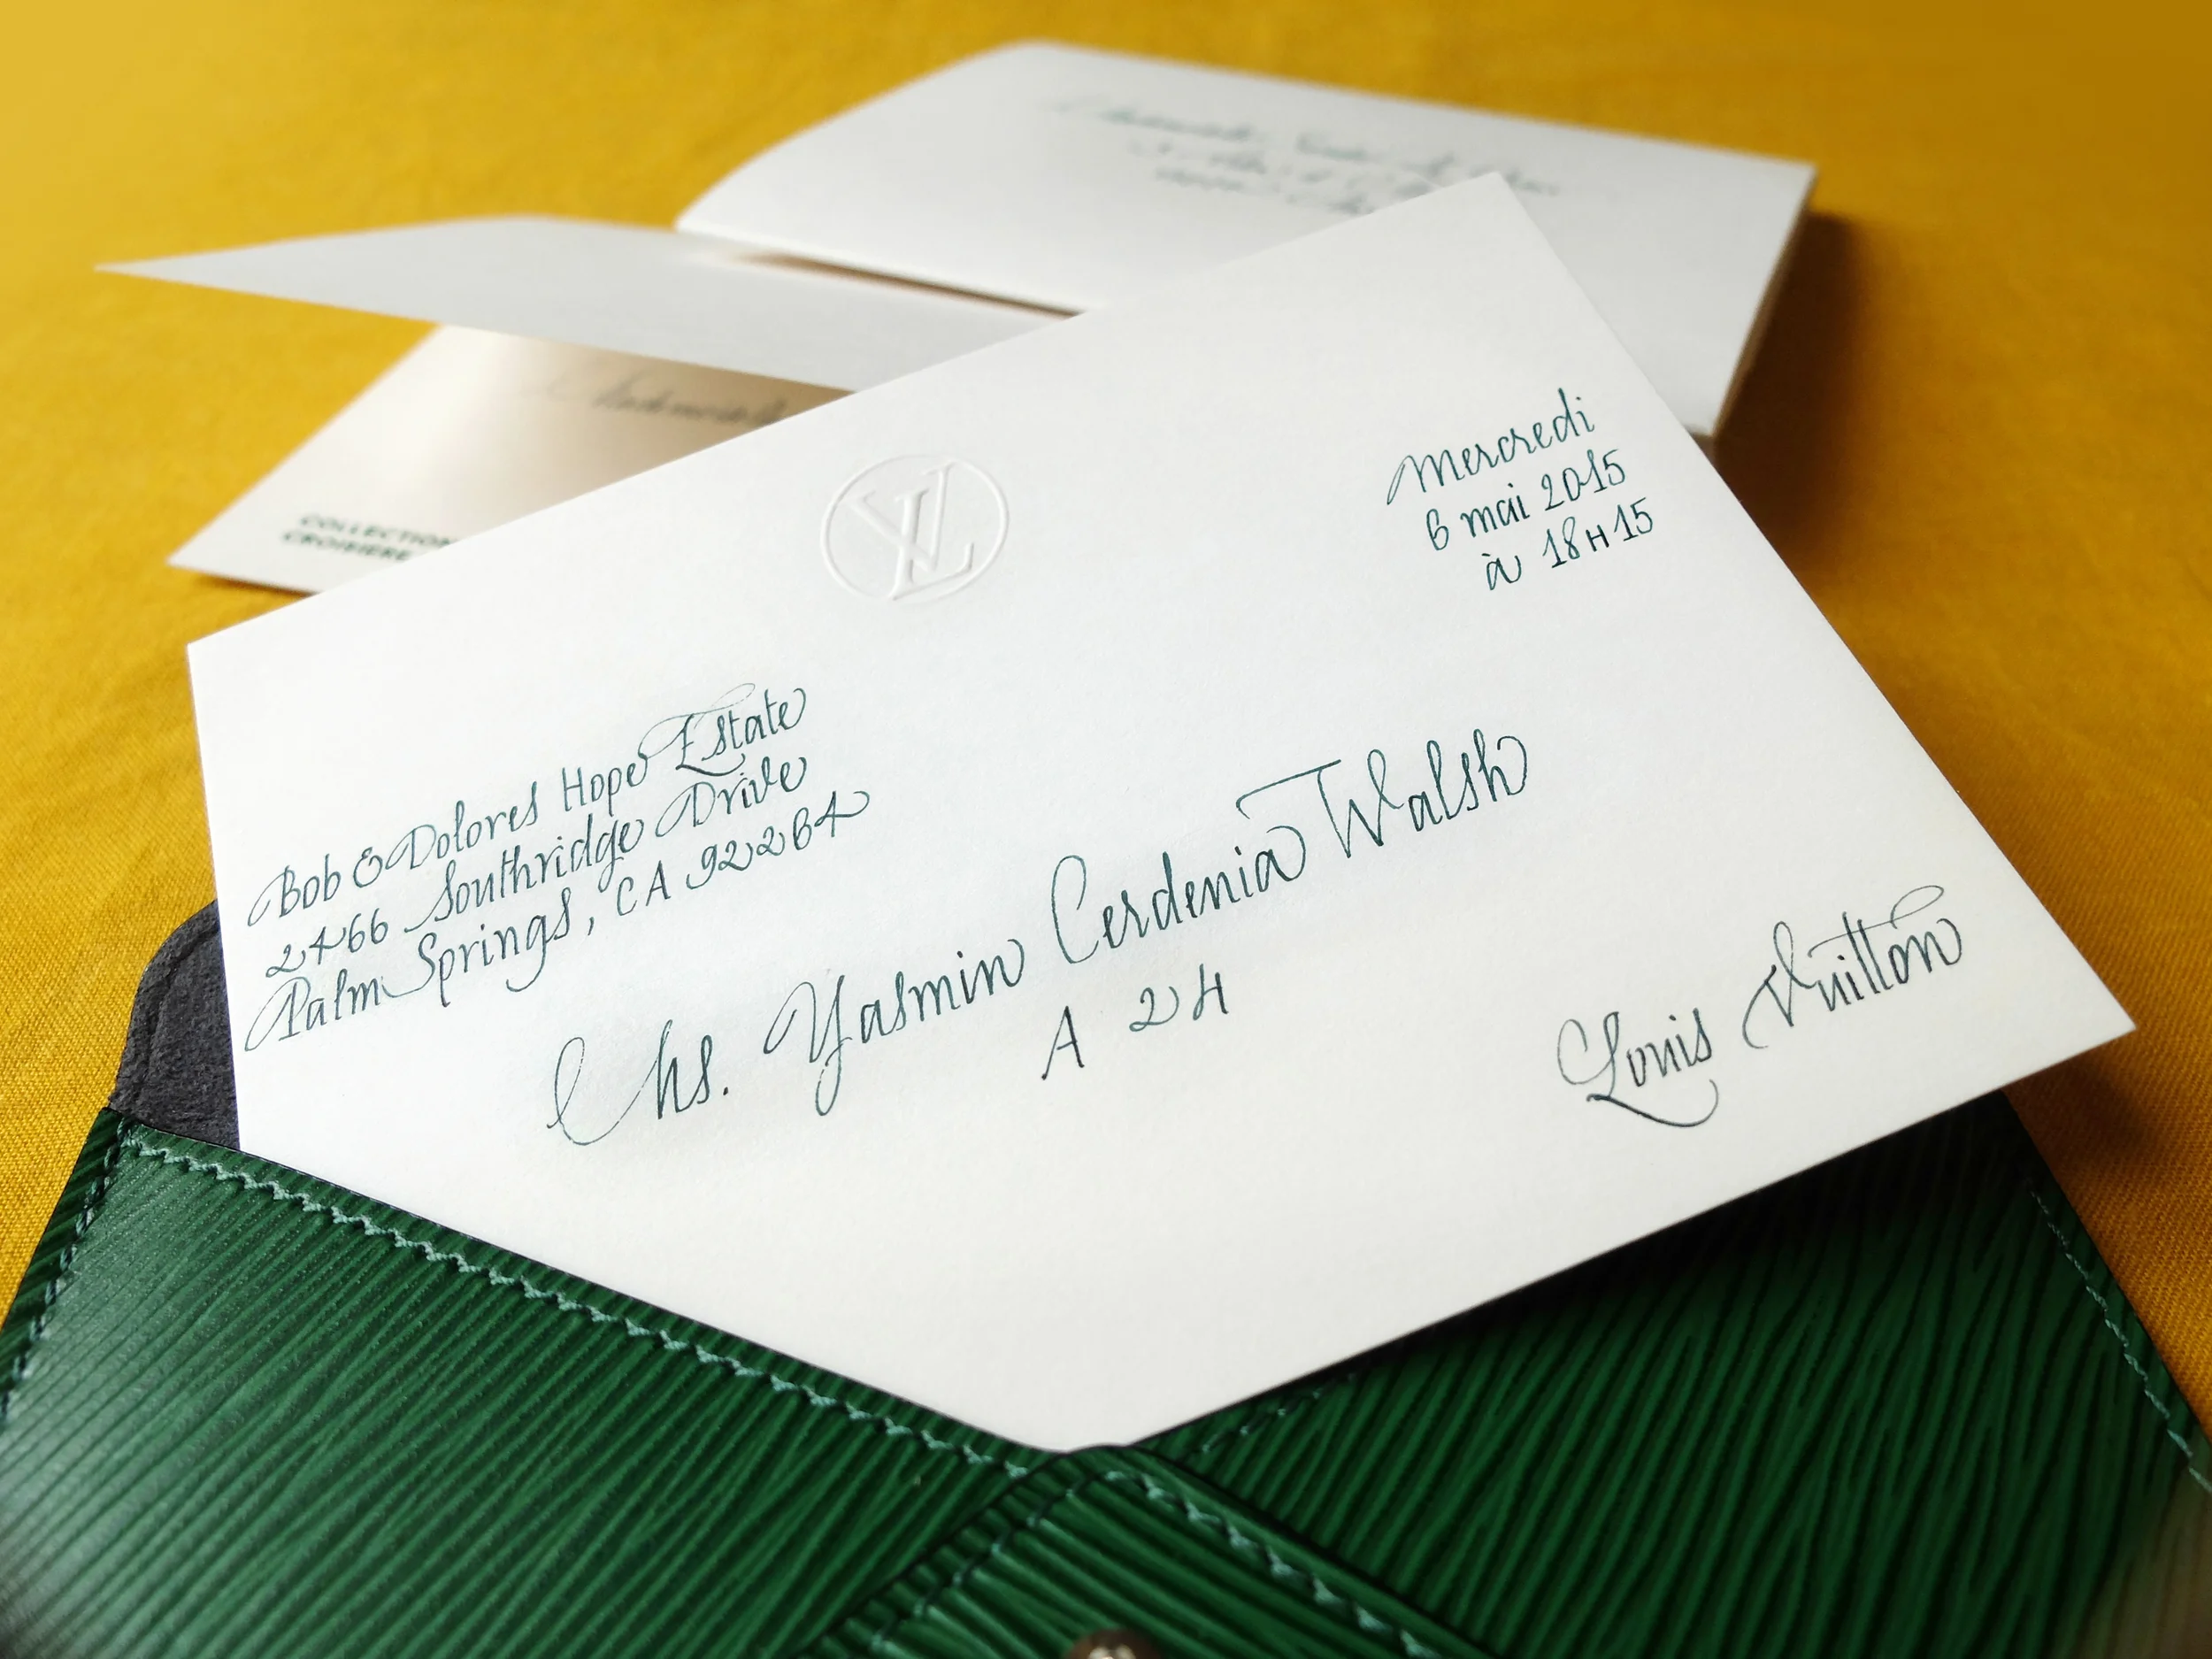 Mademoiselle
COLLECTION
CROISIERE
LV
Mercredi
6 mai 2015
à 18H15
Bob & Dolores Hope Estate
2466 Southridge Drive
Palm Springs, CA 92264
Ms. Yasmin Cerdenia Walsh
A 24
Louis Vuitton